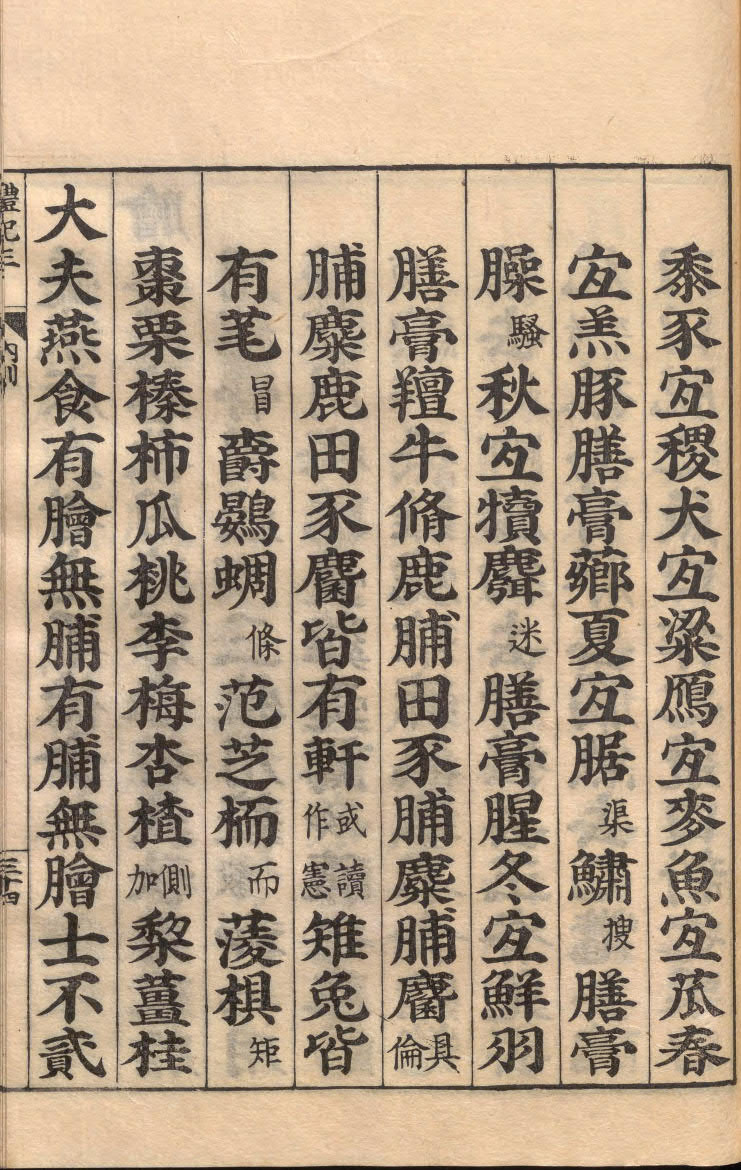 黍豕宐稷犬宐粱鴈宐麥魚宐苽春
宐羔豚膳膏薌夏宐腒渠鱐搜膳膏
臊騷秋宐犢麛迷膳膏腥冬宐鮮羽
膳膏羶牛脩鹿脯田豕脯麋脯麕具倫
脯麋鹿田豕麕皆有軒或讀作憲雉兔皆
有芼冒爵鷃蜩條范芝栭而蔆椇矩
棗栗榛柿瓜桃李梅杏楂側加棃薑桂
大夫燕食有膾無脯有脯無膾士不貳
禮記三
內則
三十四